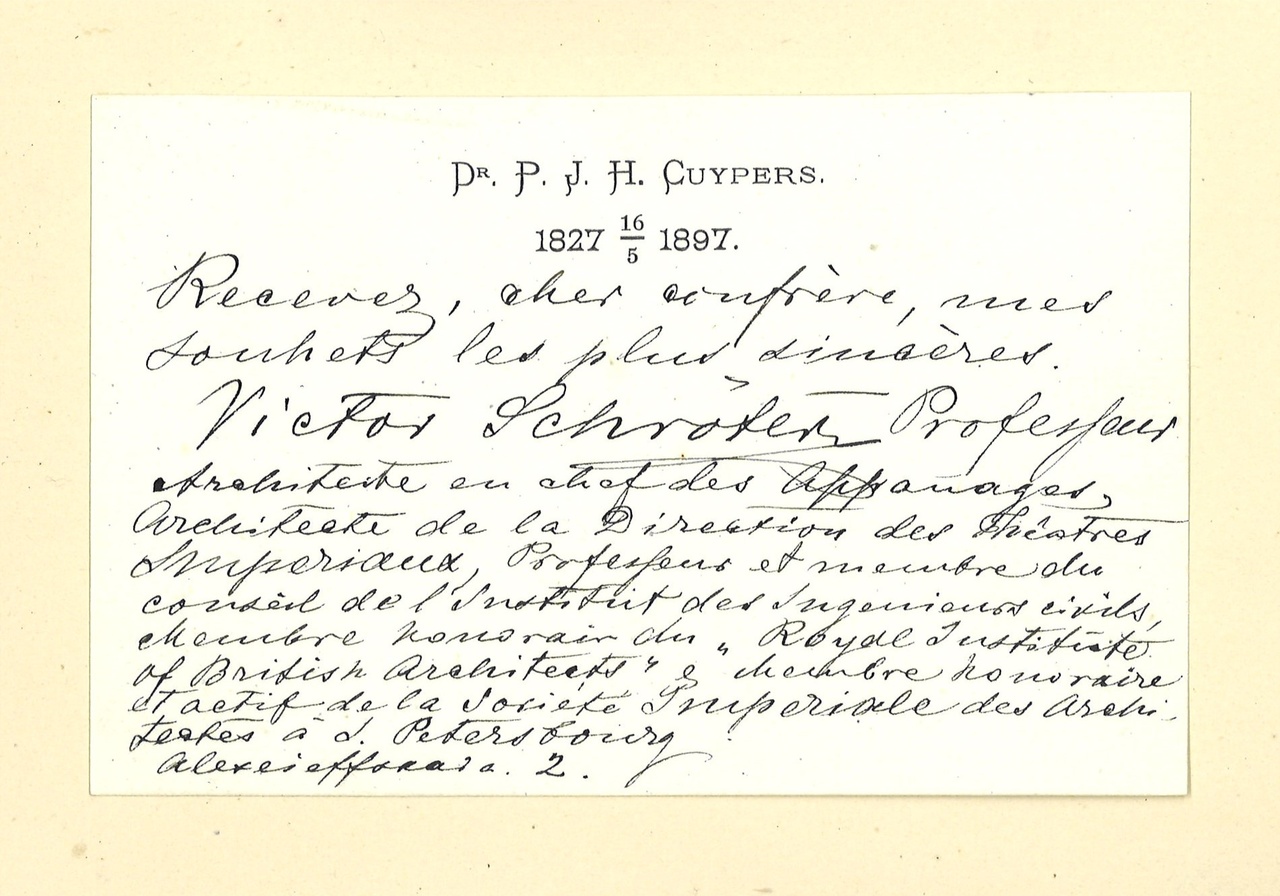 Dr. P. J. H. Cuypers.
1827 16/5 1897.
Recevez, cher confrère, mes
souhets les plus sincères.
Victor Schröter, Professeur
Architecte en chef des Appanages,
Architecte de la Direction des Théatres
Imperiaux, Professeur et membre du
conseil de l'Institut des Ingenieurs civils,
membre honorair du „Royal Institute
of British Architects" & membre honoraire
et actif de la Societé Imperiale des Archi-
tectes à S. Petersbourg
Alexeieffskaia. 2.